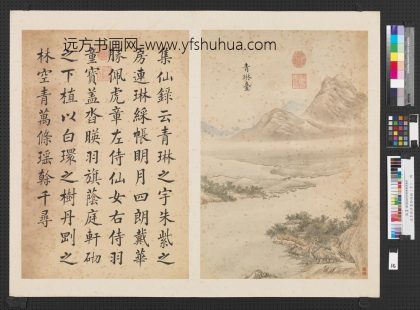 远方书画网-www.yfshuhua.com
青琳臺
集仙録云青琳之宇朱紫之
房連琳綵帳明月四朗戴華
勝佩虎章左侍仙女右侍羽
童寳盖沓暎羽旗蔭庭軒砌
之下植以白環之樹丹剛之
林空青萬條瑶榦千尋